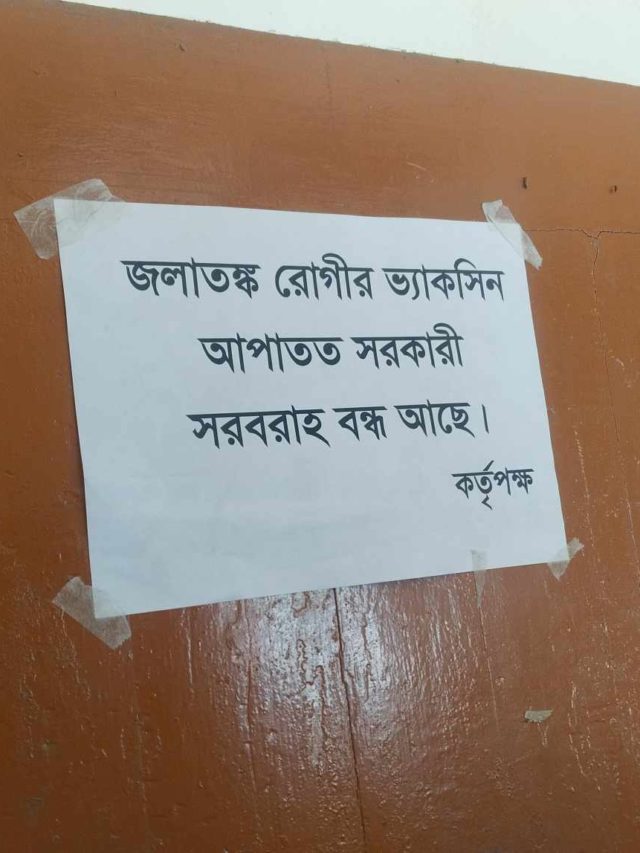 জলাতঙ্ক রোগীর ভ্যাকসিন
আপাতত সরকারী
সরবরাহ বন্ধ আছে।
কর্তৃপক্ষ